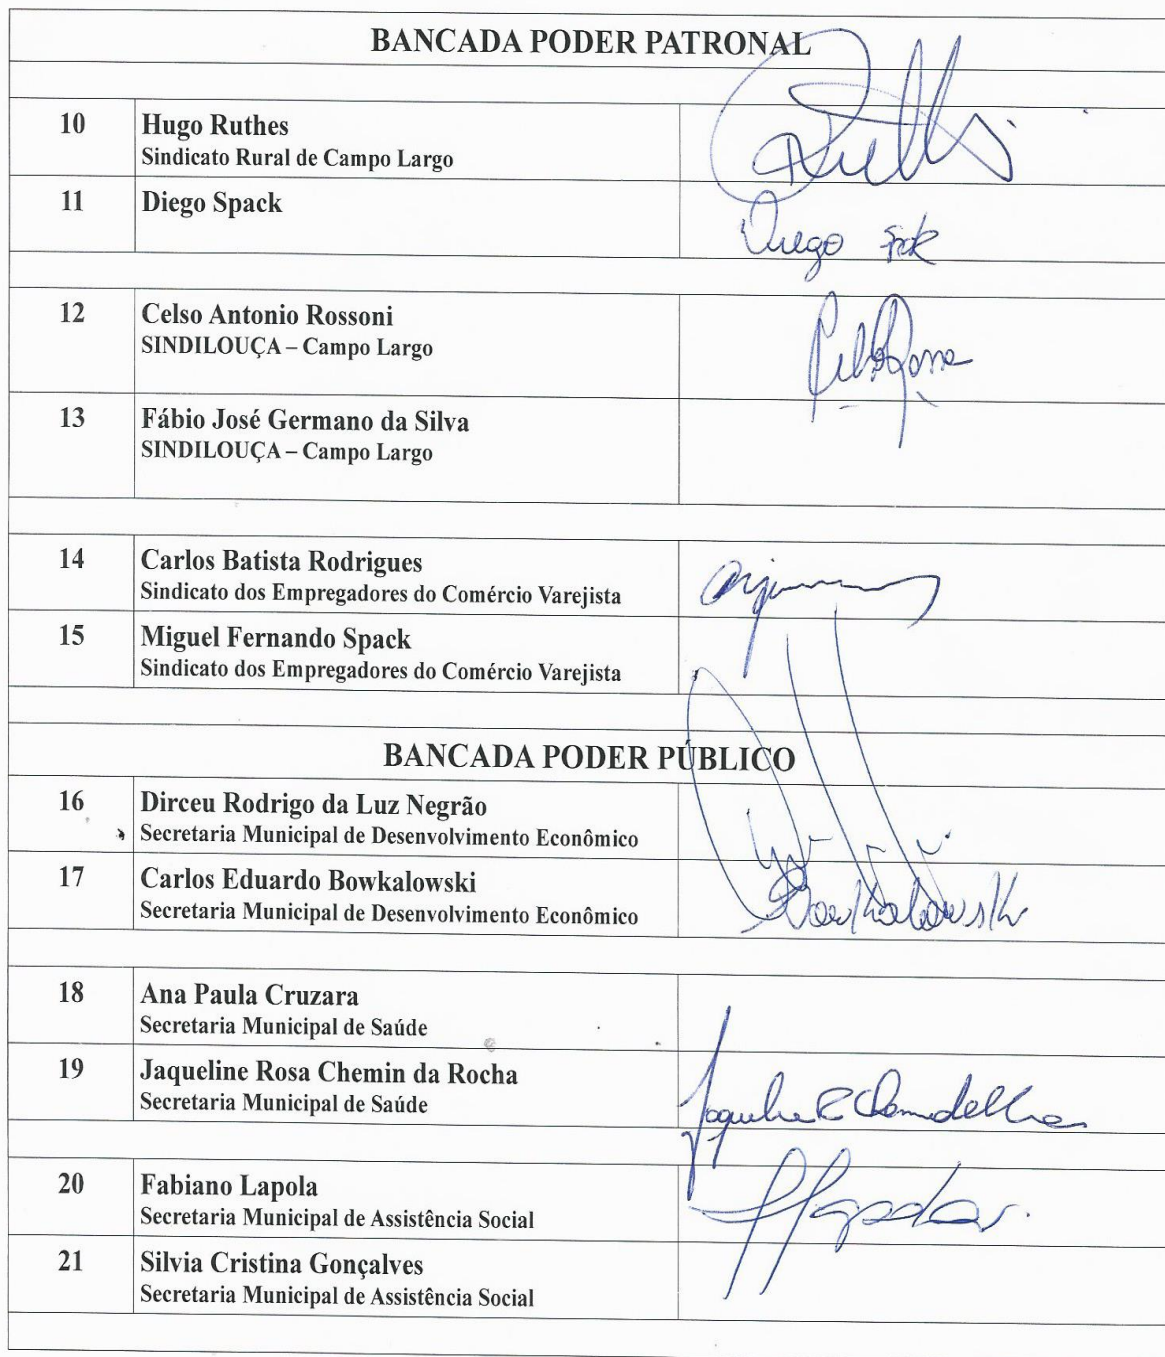 BANCADA PODER PATRONAL
10 Hugo Ruthes
Sindicato Rural de Campo Largo
11 Diego Spack
Diego
12 Celso Antonio Rossoni
SINDILOUÇA – Campo Largo
13 Fábio José Germano da Silva
SINDILOUÇA – Campo Largo
14 Carlos Batista Rodrigues
Sindicato dos Empregadores do Comércio Varejista
15 Miguel Fernando Spack
Sindicato dos Empregadores do Comércio Varejista
BANCADA PODER PÚBLICO
16 Dirceu Rodrigo da Luz Negrão
Secretaria Municipal de Desenvolvimento Econômico
17 Carlos Eduardo Bowkalowski
Secretaria Municipal de Desenvolvimento Econômico
Bowkalowski
18 Ana Paula Cruzara
Secretaria Municipal de Saúde
19 Jaqueline Rosa Chemin da Rocha
Secretaria Municipal de Saúde
20 Fabiano Lapola
Secretaria Municipal de Assistência Social
21 Silvia Cristina Gonçalves
Secretaria Municipal de Assistência Social